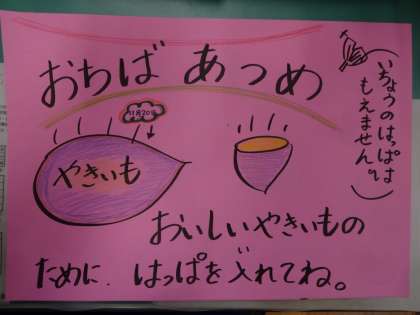 おちば あつめ
いちょうのはっぱは
もえません。
11月20日
やきいも
おいしいやきいもの
ために、はっぱを入れてね。